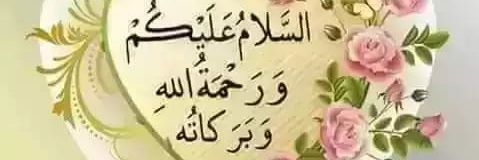 السَّلَامُ عَلَيْكُمْ
وَرَحْمَةُ اللهِ
وَبَرَكَاتُه